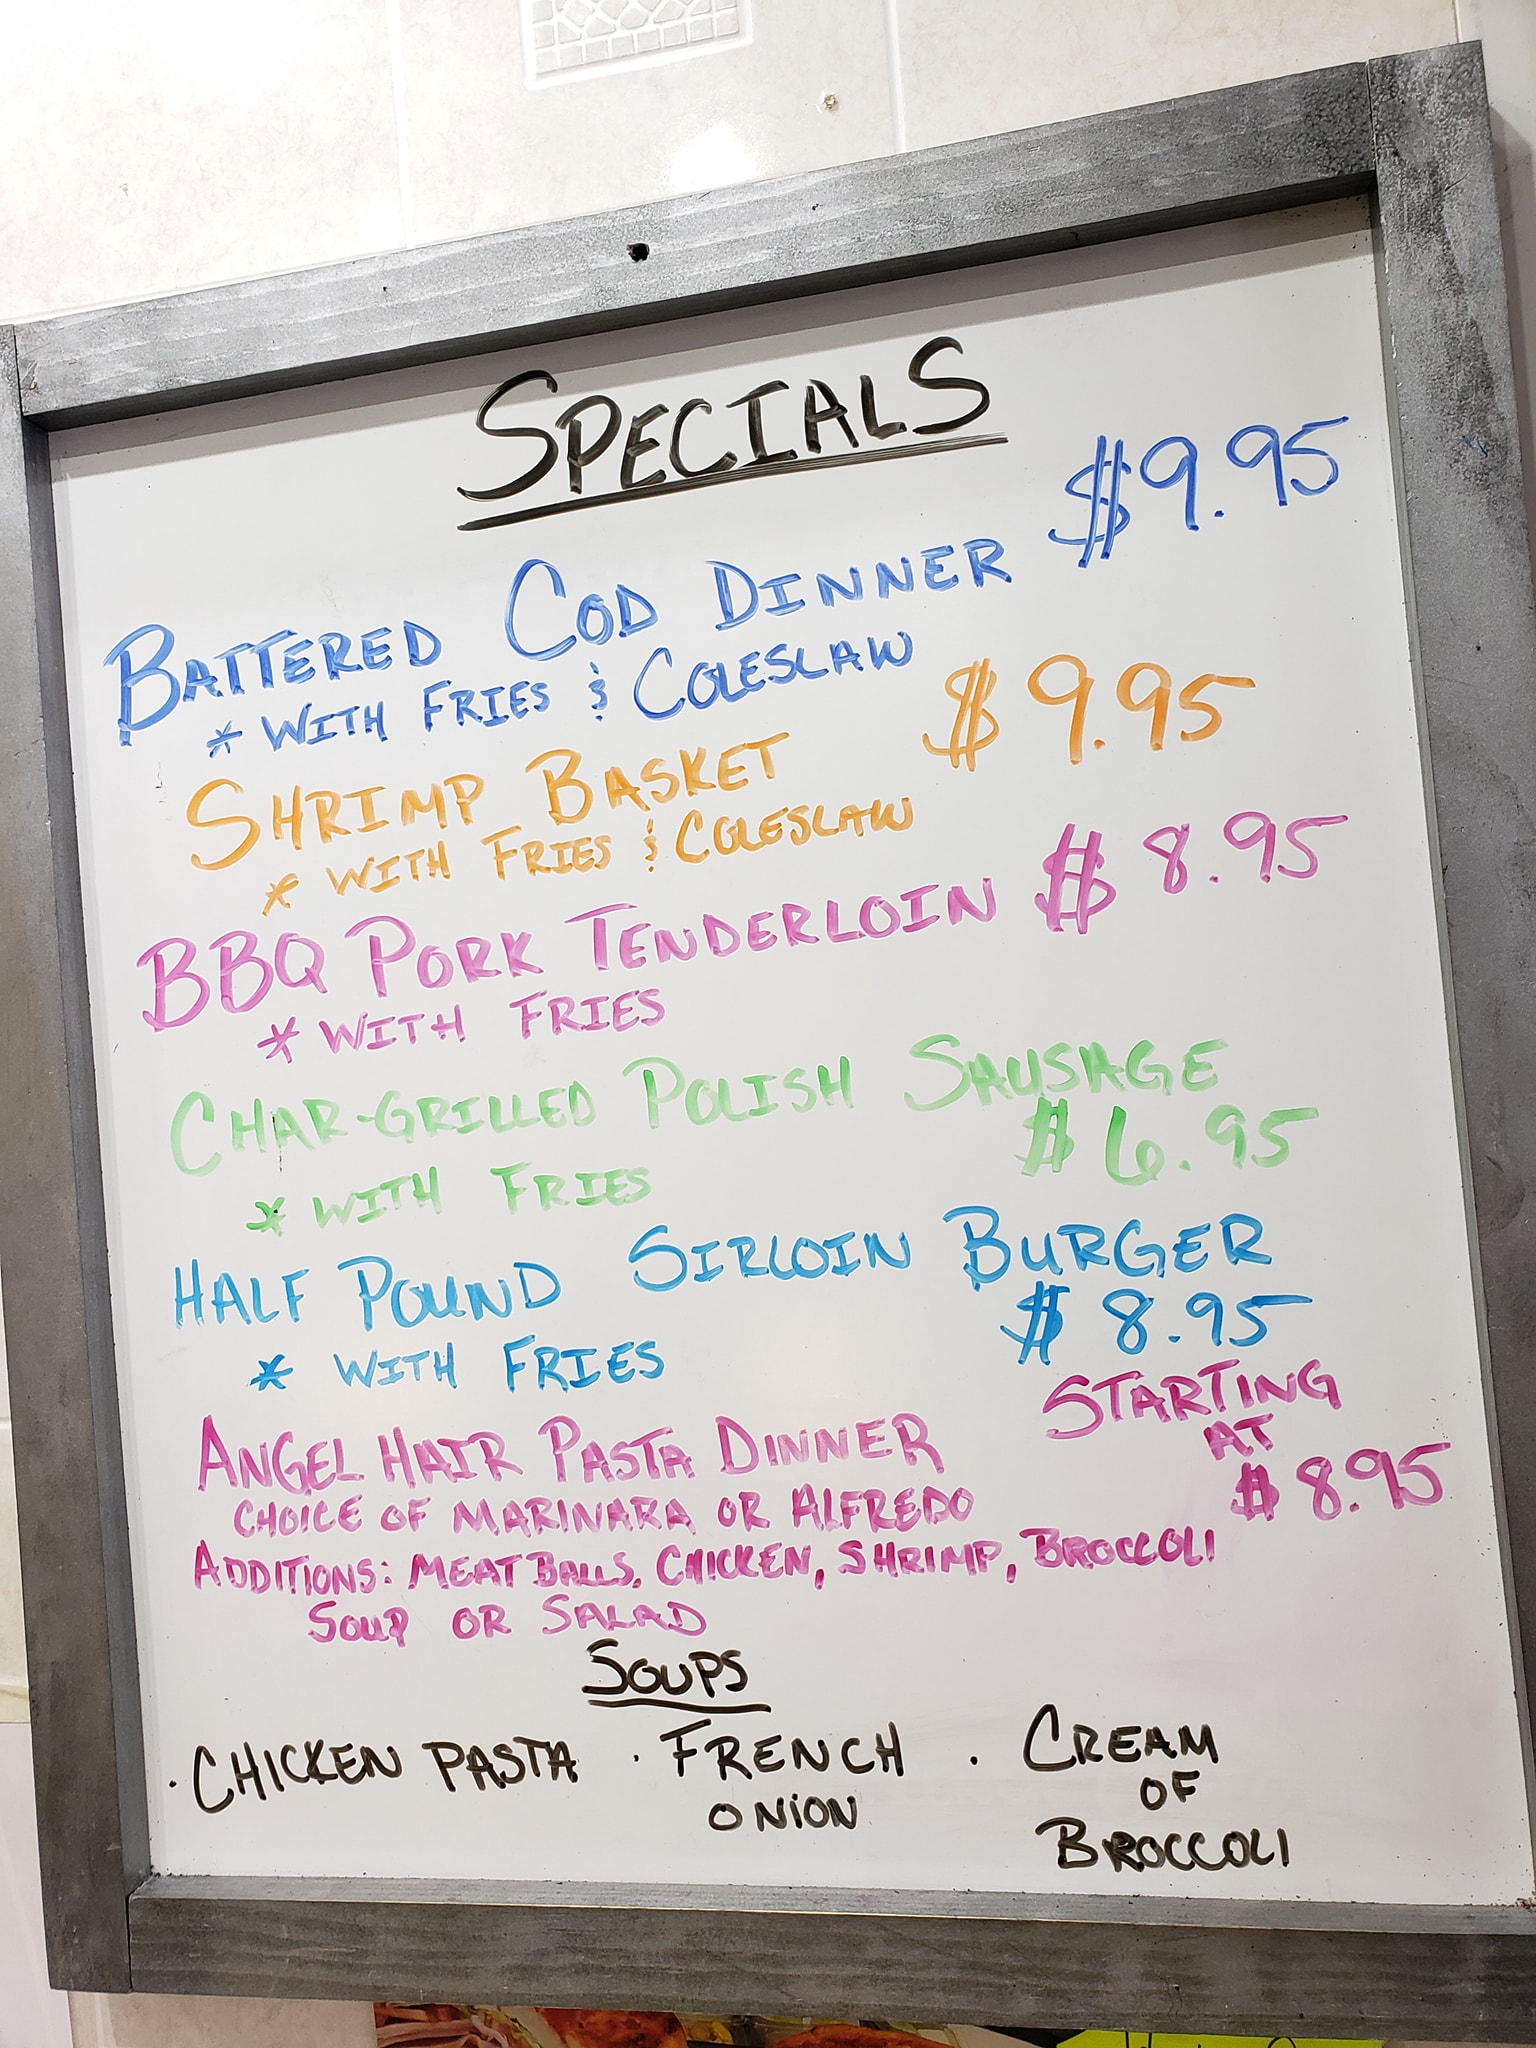 SPECIALS
BATTERED COD DINNER $9.95
* WITH FRIES & COLESLAW
SHRIMP BASKET $9.95
* WITH FRIES & COLESLAW
BBQ PORK TENDERLOIN $8.95
* WITH FRIES
CHAR-GRILLED POLISH SAUSAGE
* WITH FRIES $6.95
HALF POUND SIRLOIN BURGER
* WITH FRIES $8.95
ANGEL HAIR PASTA DINNER STARTING
AT
CHOICE OF MARINARA OR ALFREDO $8.95
ADDITIONS: MEATBALLS, CHICKEN, SHRIMP, BROCCOLI
SOUP OR SALAD
SOUPS
· CHICKEN PASTA · FRENCH ONION · CREAM OF BROCCOLI